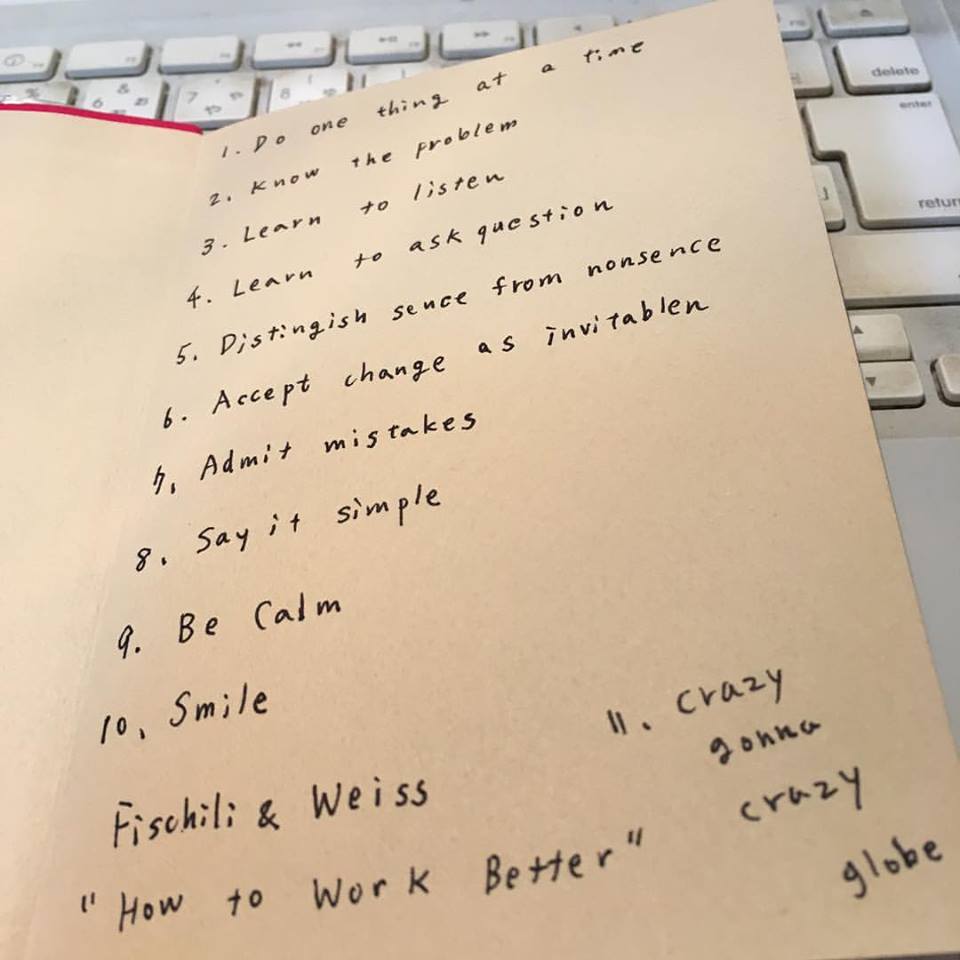 delete
enter
return
1. Do one thing at a time
2. Know the problem
3. Learn to listen
4. Learn to ask question
5. Distingish sence from nonsence
6. Accept change as invitablen
7. Admit mistakes
8. Say it simple
9. Be Calm
10. Smile
Fischili & Weiss
"How to Work Better"
11. Crazy
gonna
crazy
globe